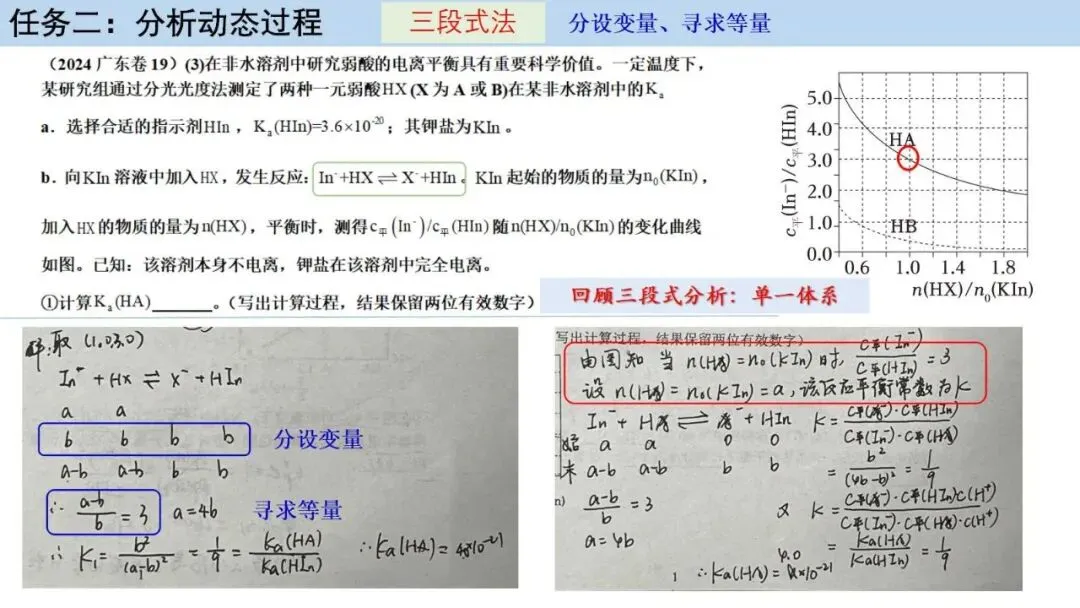 任务二：分析动态过程
三段式法
分设变量、寻求等量
（2024 广东卷 19）(3)在非水溶剂中研究弱酸的电离平衡具有重要科学价值。一定温度下，
某研究组通过分光光度法测定了两种一元弱酸HX (X 为 A 或 B)在某非水溶剂中的Kₐ
a．选择合适的指示剂HIn ，Kₐ(HIn)=3.6×10⁻²⁰；其钾盐为KIn 。
b．向KIn 溶液中加入HX，发生反应：In⁻+HX⇌X⁻+HIn。KIn 起始的物质的量为n₀(KIn)，
加入HX的物质的量为n(HX)，平衡时，测得c平(In⁻)/c平(HIn) 随n(HX)/n₀(KIn)的变化曲线
如图。已知：该溶剂本身不电离，钾盐在该溶剂中完全电离。
①计算Kₐ(HA)______。（写出计算过程，结果保留两位有效数字）
回顾三段式分析：单一体系
c平(In⁻)/c平(HIn)
5.0
4.0
3.0
2.0
1.0
0.0
HA
HB
0.6 1.0 1.4 1.8
n(HX)/n₀(KIn)
取 (1.0,3.0)
In⁻ + HX ⇌ X⁻ + HIn
a a
b b b b
分设变量
a-b a-b b b
∴ (a-b)/b = 3 a=4b
寻求等量
∴ K₁= b²/(a-b)² = 1/9 = Ka(HA)/Ka(HIn) ∴Ka(HA)=4×10⁻²¹
写出计算过程，结果保留两位有效数字）
由图知 当 n(HA)=n₀(KIn)时, c平(In⁻)/c平(HIn) = 3
设 n(HA)=n₀(KIn)=a,该反应平衡常数为K
In⁻ + HA ⇌ A⁻ + HIn K= c平(A⁻)·c平(HIn)/c平(In⁻)·c平(HA)
始 a a 0 0
末 a-b a-b b b = b²/(4b-b)² = 1/9
(a-b)/b = 3 又 K= c平(A⁻)·c平(HIn)c(H⁺)/c平(In⁻)·c平(HA)·c(H⁺)
a=4b = Ka(HA)/Ka(HIn) = 1/9
∴Ka(HA)=4.0×10⁻²¹